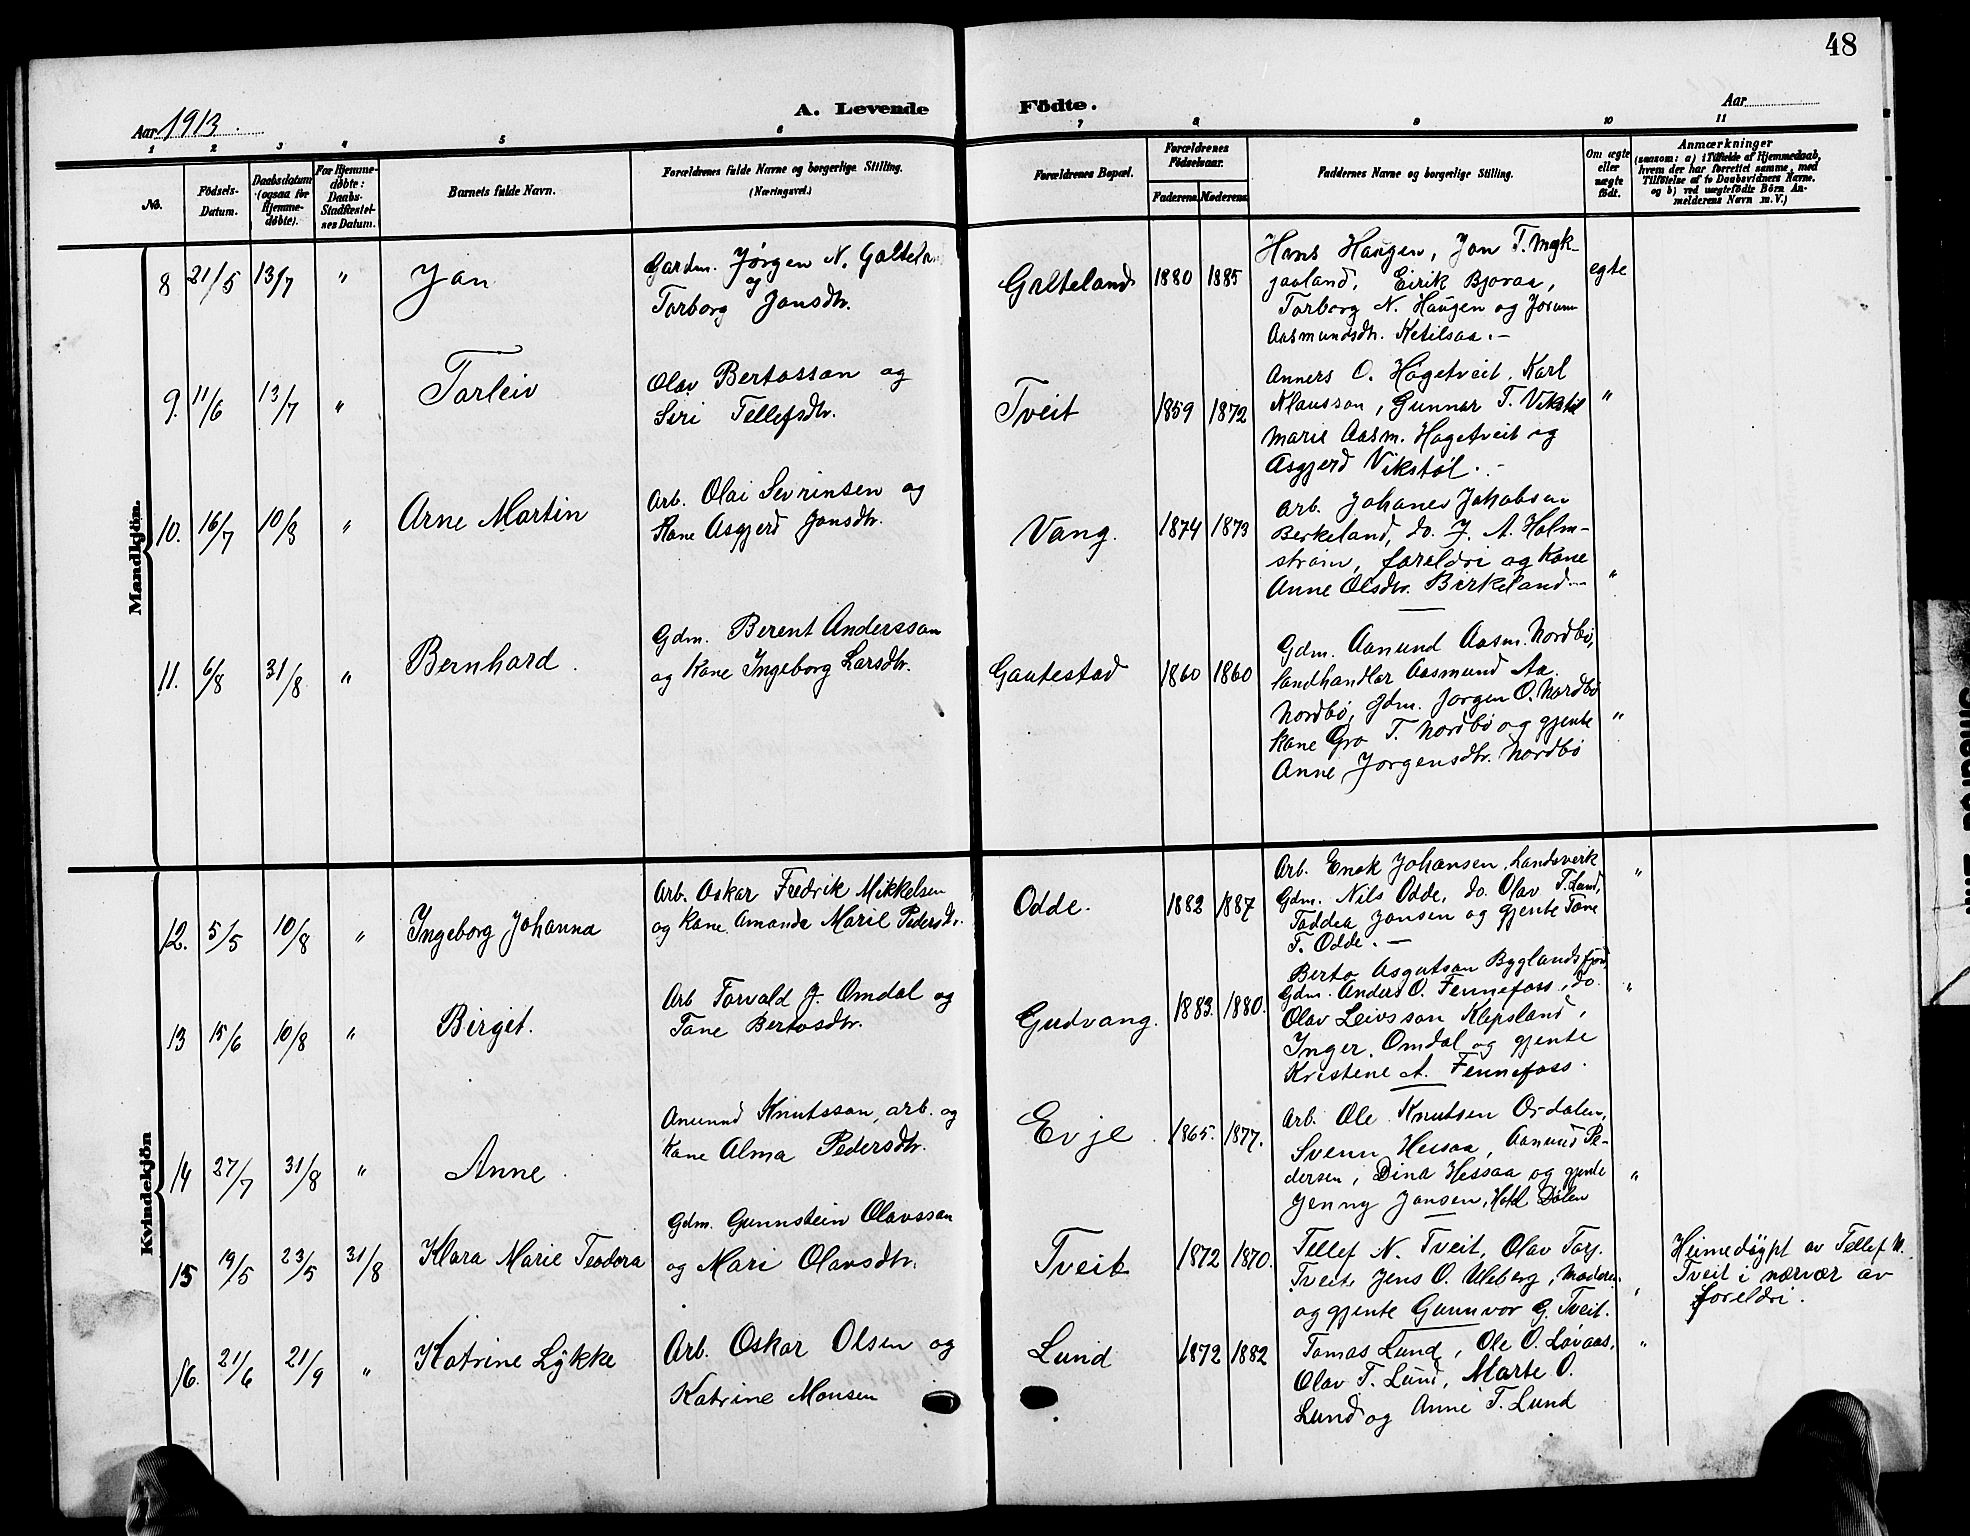 48
Aar 1913.
A. Levende Födte.
Aar
1 2 3 4 5 6 7 8 9 10 11
No.
Födsels-Datum.
Daabsdatum (ogsaa for Hjemmedøbte).
For Hjemmedøbte: Daabs-Stadfæstelses Datum.
Barnets fulde Navn.
Forældrenes fulde Navne og borgerlige Stilling. (Næringsvei.)
Forældrenes Bopæl.
Forældrenes Fødselsaar.
Faderens. Moderens.
Faddernes Navne og borgerlige Stilling.
Om ægte eller uægte født.
Anmærkninger
(saasom: a) i Tilfælde af Hjemmedaab,
hvem der har forrettet samme, med
Tilføielse af to Daabsvidners Navne.
og b) ved uægtefødte Börn An-
melderens Navn m. V.)
Mandkjön.
8 21/5 13/7 " Jan
Gardm. Jørgen N. Galteland
og
Torborg Jonsdtr.
Galteland 1880 1885
Hans Haugen, Jon T. Myk-
jaaland, Eirik Bjoraa,
Torborg N. Haugen og Jorunn
Aasmundsdtr. Ketilsaa. -
egte
9. 11/6 13/7 " Torleiv
Olav Bertosson og
Siri Tellefsdtr.
Tveit 1859 1872
Anners O. Høgetveit, Karl
Klausson, Gunnar T. Vikstøl
Marie Aasm. Hogetveit og
Asgjerd Vikstøl. -
"
10. 16/7 10/8 " Arne Martin
Arb. Olai Sevrinsen og
Kone Asgjerd Jonsdtr.
Vang. 1874 1873
Arb. Johanes Jakobsen
Berkeland, do. J. A. Holm-
strøm, foreldri og kone
Anne Olsdtr. Birkeland. -
"
11. 6/8 31/8 " Bernhard.
Gdm. Berent Andersson
og Kone Ingeborg Larsdtr.
Gautestad 1860 1860
Gdm. Aanund Aasm. Nordbø,
landhandlar Aasmund Aa.
Nordbø, gdm. Jorgen O. Nordbø
kone Gro T. Nordbø og gjente
Anne Jorgensdtr. Nordbø
"
Kvindekjön
12. 5/5 10/8 " Ingeborg Johanna
Arb. Oskar Fredrik Mikkelsen
og Kone Amanda Marie Pedersdtr.
Odde. 1882 1887
Arb. Enok Johansen Landsverk
Gdm. Nils Odde, do. Olav T. Lund,
Taddea Jansen og gjente Tone
T. Odde. -
"
13 15/6 10/8 " Birgit.
Arb Torvald J. Omdal og
Tone Bertosdtr.
Gudvang. 1883. 1880.
Berto Asgutson Byglandsfjord,
Gdm. Anders O. Fennefoss, do.
Olav Leivsson Klepsland,
Inger Omdal og gjente
Kristene A. Fennefoss.
"
14 27/7 31/8 " Anne.
Anunnd Knutsson, arb. og
Kone Alma Pedersdtr.
Evje. 1865. 1877.
Arb. Ole Knutsen Ordalen,
Svenn Hessaa, Aanund Pe-
dersen, Dina Hessaa og gjente
Jenny Jansen, Hotel Dølen
"
15 19/5 23/5 31/8 Klara Marie Teodora
Gdm. Gunnstein Olavsson
og Mari Olavsdtr.
Tveit 1872 1870.
Tellef N. Tveit, Olav Torj.
Tveit, Jens O. Uleberg, Moderen
og gjente Gunnvor G. Tveit.
"
Heimedøypt av Tellef N.
Tveit i nærvær av
foreldri.
16. 21/6 21/9 " Katrine Lykke
Arb. Oskar Olsen og
Katrine Monsen
Lund 1872 1882
Tomas Lund, Ole O. Løvaas,
Olav T. Lund, Marte O.
Lund og Anne T. Lund
"